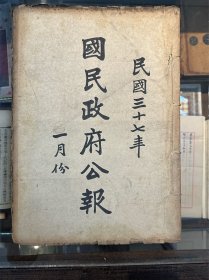 民國三十七年
國民政府公報
一月份